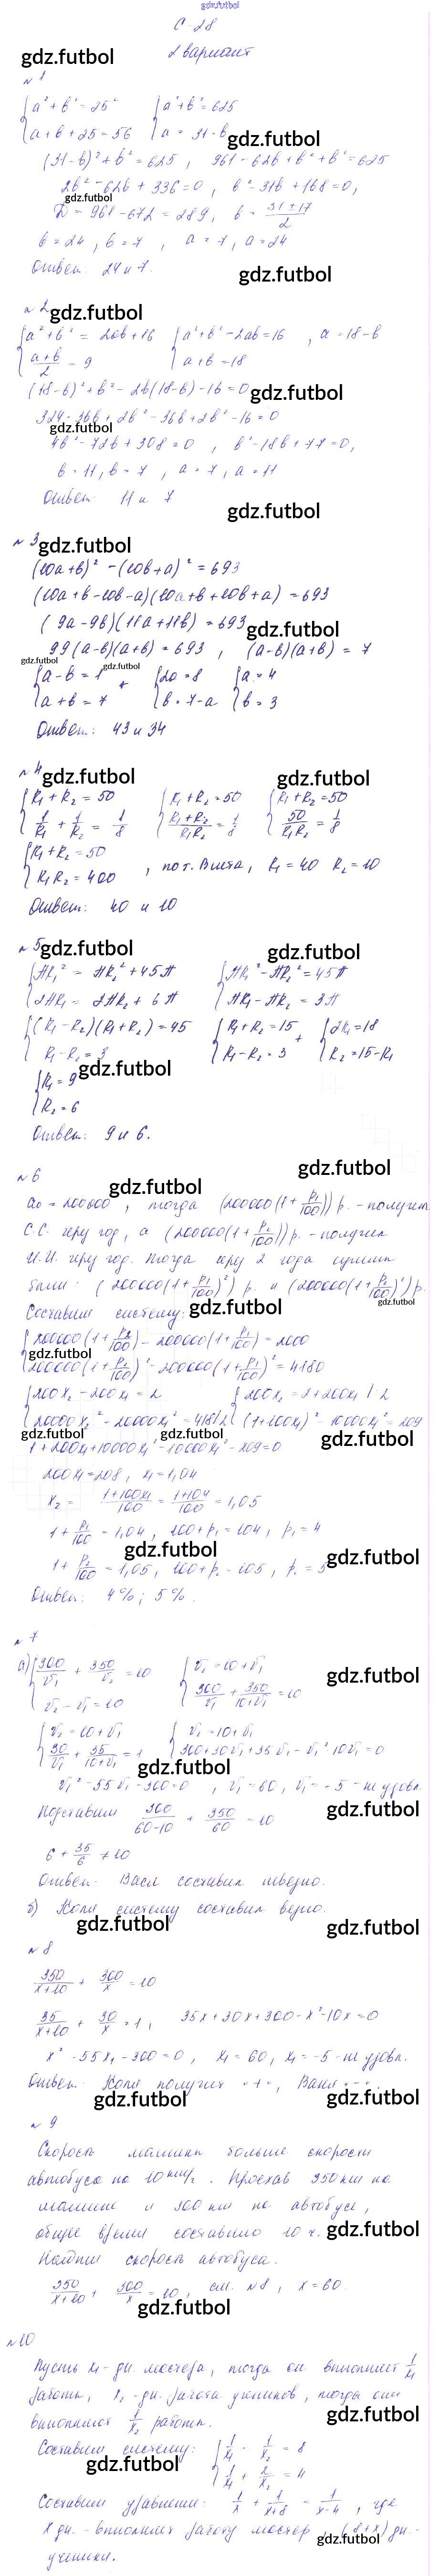 gdz.futbol
С-28
2 вариант
gdz.futbol
№1
{a² + b² = 25² {a² + b² = 625
{a + b + 25 = 56 {a = 31 - b
gdz.futbol
(31 - b)² + b² = 625, 961 - 62b + b² + b² = 625
2b² - 62b + 336 = 0, b² - 31b + 168 = 0,
gdz.futbol
D = 961 - 672 = 289, b = (31 ± 17)/2
b = 24, b = 7, a = 7, a = 24
Ответ: 24 и 7.
gdz.futbol
№2
gdz.futbol
{a² + b² = 2ab + 16 {a² + b² - 2ab = 16, a = 18 - b
{(a + b)/2 = 9 {a + b = 18
(18 - b)² + b² - 2b(18 - b) - 16 = 0
gdz.futbol
324 - 36b + 2b² - 36b + 2b² - 16 = 0
gdz.futbol
4b² - 72b + 308 = 0, b² - 18b + 77 = 0,
b = 11, b = 7, a = 7, a = 11
Ответ: 11 и 7
gdz.futbol
№3
gdz.futbol
(10a + b)² - (10b + a)² = 693
(10a + b - 10b - a)(10a + b + 10b + a) = 693
(9a - 9b)(11a + 11b) = 693
gdz.futbol
99(a - b)(a + b) = 693, (a - b)(a + b) = 7
gdz.futbol gdz.futbol
{a - b = 1 + {2a = 8 {a = 4
{a + b = 7 {b = 7 - a {b = 3
Ответ: 43 и 34
№4
gdz.futbol gdz.futbol
{R₁ + R₂ = 50 {R₁ + R₂ = 50 {R₁ + R₂ = 50
{1/R₁ + 1/R₂ = 1/8 {(R₁ + R₂)/(R₁R₂) = 1/8 {50/(R₁R₂) = 1/8
{R₁ + R₂ = 50
{R₁R₂ = 400, по т. Виета, R₁ = 40 R₂ = 10
Ответ: 40 и 10
№5
gdz.futbol gdz.futbol
{πR₁² = πR₂² + 45π {πR₁² - πR₂² = 45π
{2πR₁ = 2πR₂ + 6π {πR₁ - πR₂ = 3π
{(R₁ - R₂)(R₁ + R₂) = 45 {R₁ + R₂ = 15 + {2R₁ = 18
{R₁ - R₂ = 3 {R₁ - R₂ = 3 {R₂ = 15 - R₁
gdz.futbol
{R₁ = 9
{R₂ = 6
Ответ: 9 и 6.
gdz.futbol
№6
gdz.futbol
a₀ = 200000, тогда (200000(1 + p₁/100)) р. - получит
С.С. через год, а (200000(1 + p₂/100)) р. - получит
И.И. через год. Тогда через 2 года суммы
были: (200000(1 + p₁/100)²) р. и (200000(1 + p₂/100)²) р.
gdz.futbol
Составим систему:
gdz.futbol
{200000(1 + p₂/100) - 200000(1 + p₁/100) = 2000
gdz.futbol
{200000(1 + p₂/100)² - 200000(1 + p₁/100)² = 4180
{200x₂ - 200x₁ = 2 {200x₂ = 2 + 200x₁ |:2
{20000x₂² - 20000x₁² = 418 |:2 {(1 + 100x₁)² - 10000x₁² = 209
gdz.futbol gdz.futbol gdz.futbol
1 + 200x₁ + 10000x₁² - 10000x₁² - 209 = 0
200x₁ = 208, x₁ = 1,04
x₂ = (1 + 100x₁)/100 = (1 + 104)/100 = 1,05
1 + p₁/100 = 1,04, 100 + p₁ = 104, p₁ = 4
gdz.futbol gdz.futbol
1 + p₂/100 = 1,05, 100 + p₂ = 105, p₂ = 5
Ответ: 4%; 5%.
№7
а) {300/v₁ + 350/v₂ = 10 {v₂ = 10 + v₁
gdz.futbol
{v₂ - v₁ = 10 {300/v₁ + 350/(10 + v₁) = 10
{v₂ = 10 + v₁ {v₂ = 10 + v₁
{30/v₁ + 35/(10 + v₁) = 1 {300 + 30v₁ + 35v₁ - v₁² - 10v₁ = 0
gdz.futbol
v₁² - 55v₁ - 300 = 0, v₁ = 60, v₁ = -5 - не удовл.
gdz.futbol
Подставим 300/(60 - 10) + 350/60 = 10
6 + 35/6 ≠ 10
Ответ: Вася составил неверно.
б) Коля систему составил верно.
gdz.futbol gdz.futbol
№8
350/(x + 10) + 300/x = 10
35/(x + 10) + 30/x = 1, 35x + 30x + 300 - x² - 10x = 0
x² - 55x - 300 = 0, x₁ = 60, x₁ = -5 - не удовл.
Ответ: Коля получит "+", Ваня "-".
gdz.futbol gdz.futbol
№9
Скорость машины больше скорости
автобуса на 10 км/ч. Проехав 350 км на
машине и 300 км на автобусе,
общее время составило 10 ч.
gdz.futbol
Найдите скорость автобуса.
350/(x + 10) + 300/x = 10, см. №8, x = 60.
gdz.futbol
№10
Пусть x₁ - дн. мастера, тогда он выполнит 1/x₁
работы, x₂ - дн. работа учеников, тогда они
выполняют 1/x₂ работы.
gdz.futbol
Составим систему: {1/x₁ - 1/x₂ = 8
gdz.futbol
{1/x₁ + 2/x₂ = 4
Составим уравнение: 1/x + 1/(x + 8) = 1/(x - 4), где
x дн. - выполнит работу мастер, (8 + x) дн. -
gdz.futbol
ученики.